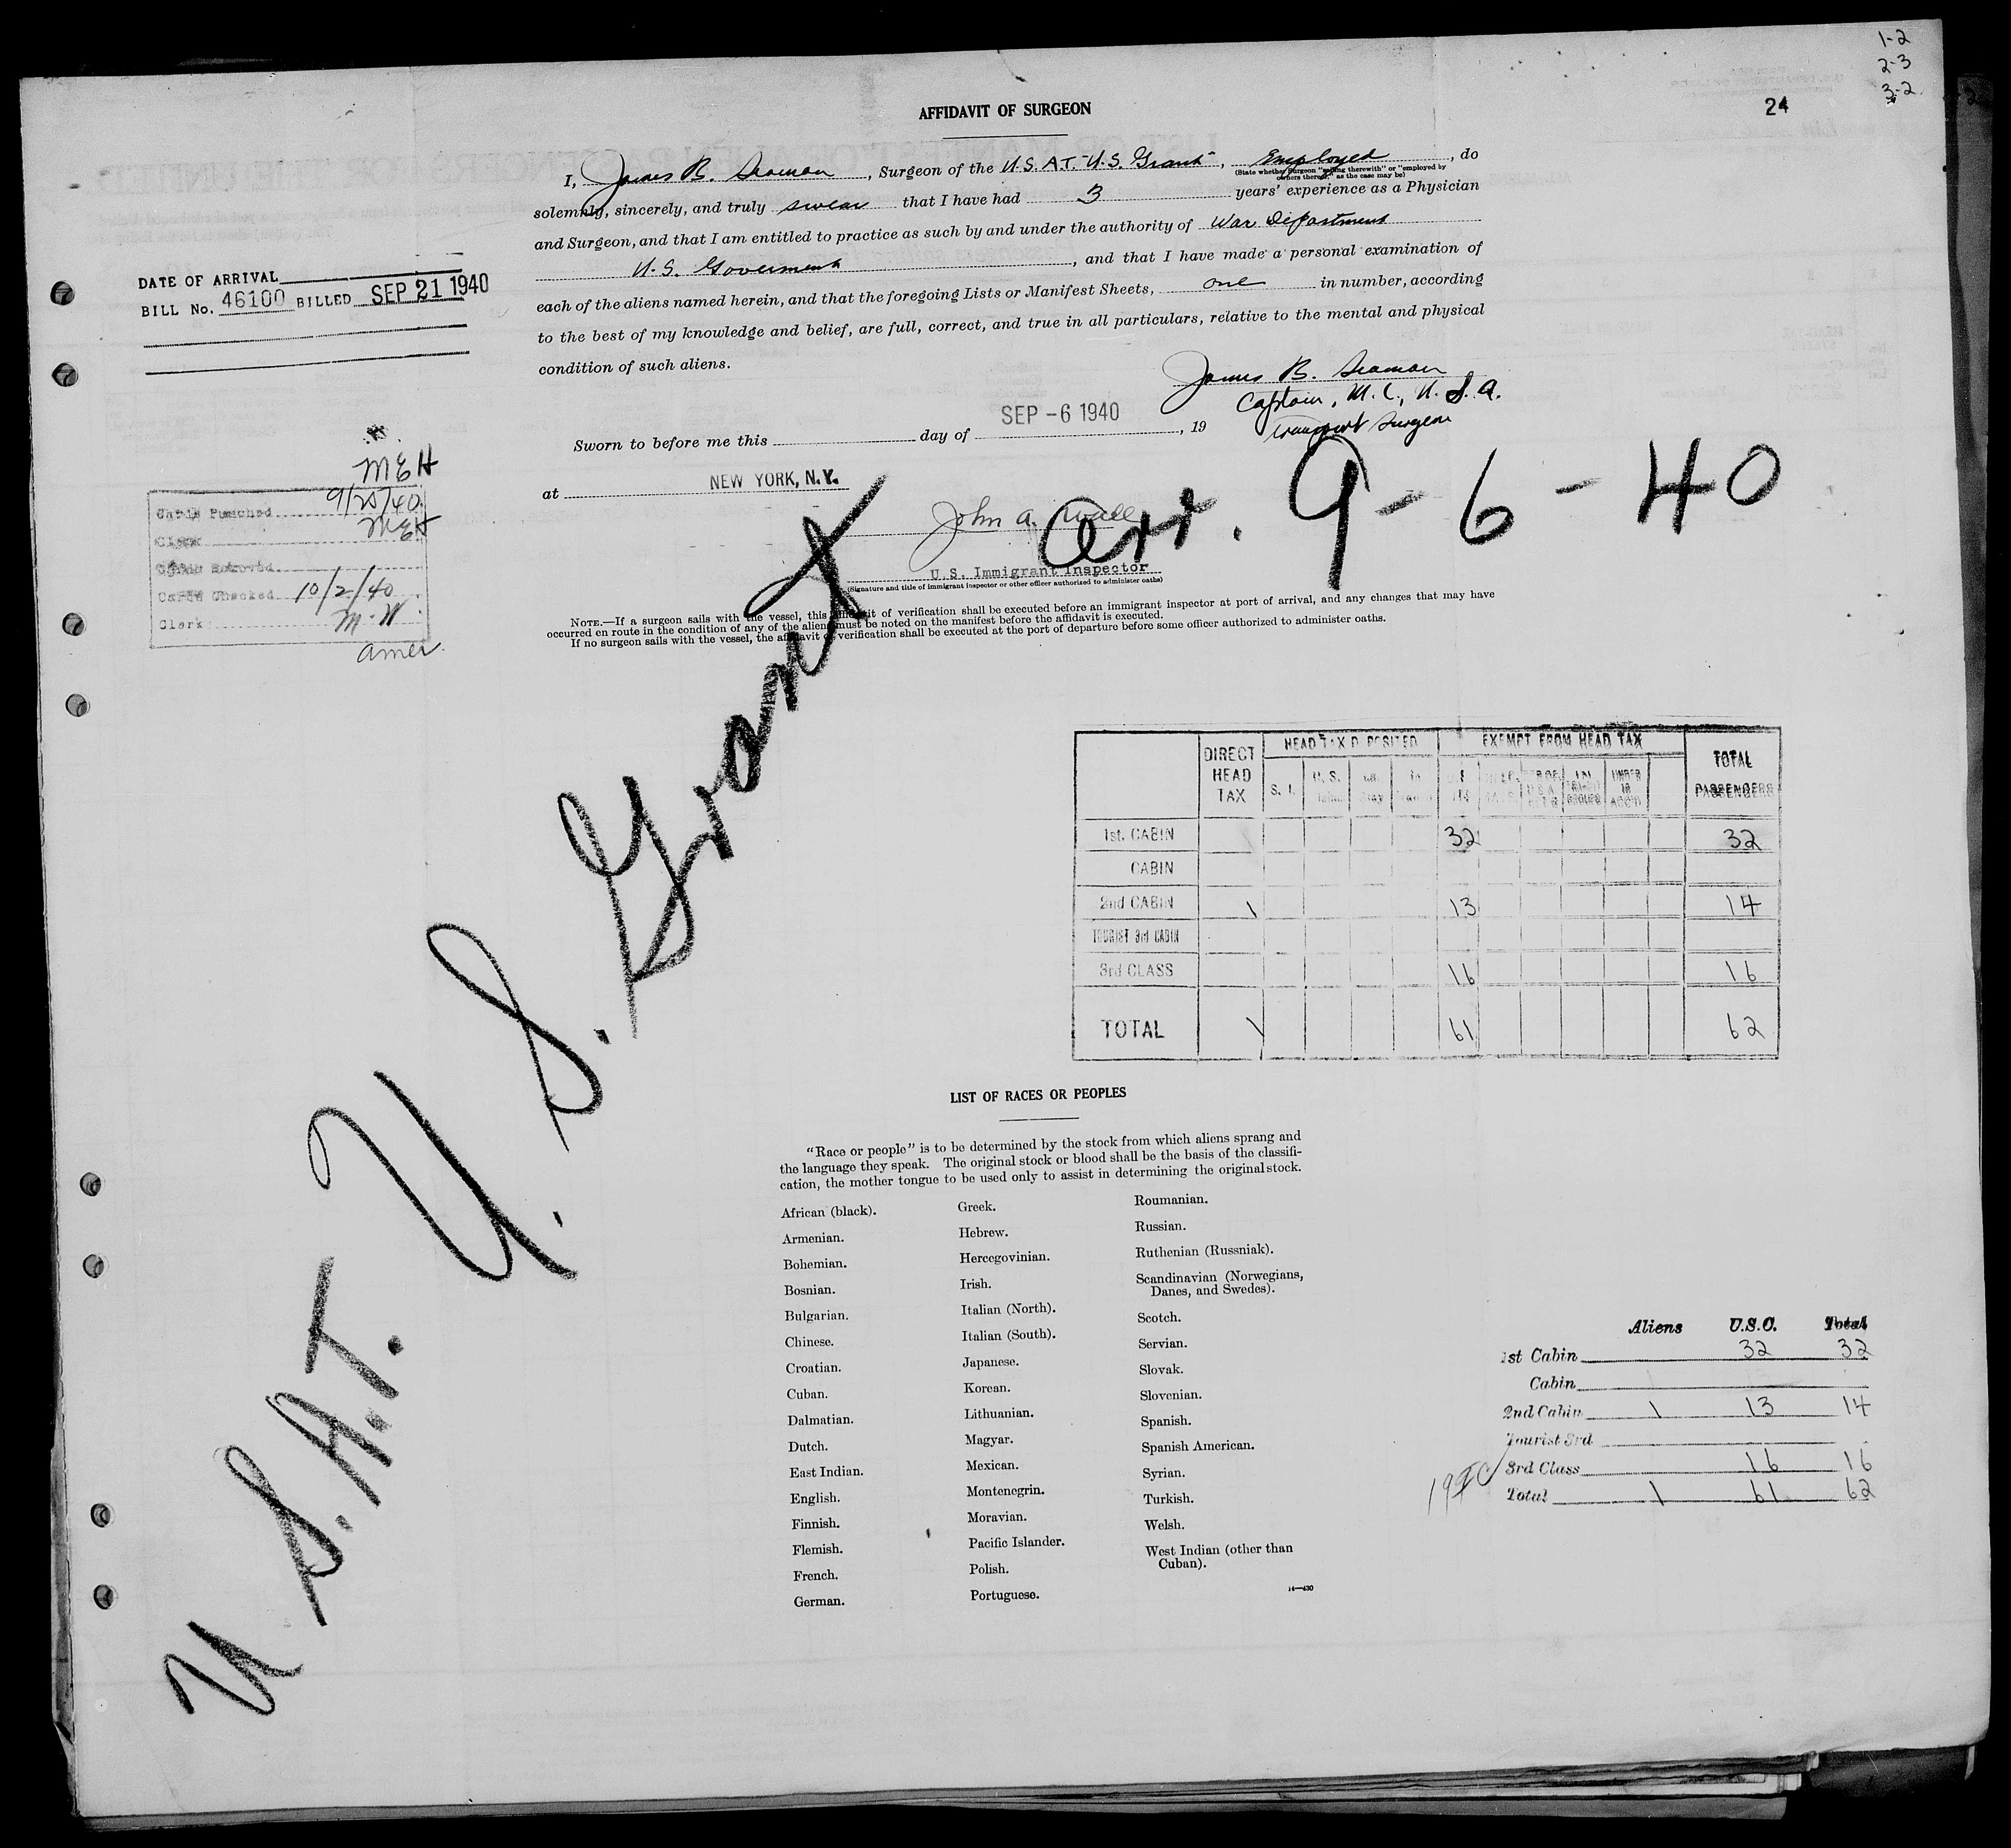 1-2
2-3
3-2
24
AFFIDAVIT OF SURGEON
I, James B. Seaman, Surgeon of the U.S.A.T. "U.S. Grant", Employed, do
(State whether Surgeon "sailing therewith" or "employed by
owners thereof," as the case may be)
solemnly, sincerely, and truly swear that I have had 3 years' experience as a Physician
and Surgeon, and that I am entitled to practice as such by and under the authority of War Department
U.S. Goverment, and that I have made a personal examination of
each of the aliens named herein, and that the foregoing Lists or Manifest Sheets, one in number, according
to the best of my knowledge and belief, are full, correct, and true in all particulars, relative to the mental and physical
condition of such aliens.
James B. Seaman
Captain, M.C., U.S.A.
Transport Surgeon
Sworn to before me this day of SEP -6 1940, 19
at NEW YORK, N.Y.
John A. Wall
U.S. Immigrant Inspector
(Signature and title of immigrant inspector or other officer authorized to administer oaths)
NOTE.—If a surgeon sails with the vessel, this affidavit of verification shall be executed before an immigrant inspector at port of arrival, and any changes that may have
occurred en route in the condition of any of the aliens must be noted on the manifest before the affidavit is executed.
If no surgeon sails with the vessel, the affidavit of verification shall be executed at the port of departure before some officer authorized to administer oaths.
DATE OF ARRIVAL
BILL No. 46100 BILLED SEP 21 1940
MEH
Cards Punched 9/25/40
Clerk MEH
Cards Checked 10/2/40
Clerk M.W.
amer.
arr. 9-6-40
U.S.A.T. U.S. Grant
DIRECT HEAD TAX HEAD TAX DEPOSITED EXEMPT FROM HEAD TAX TOTAL PASSENGERS
S. I. U. S.
UNDER 16 ACC'D
1st. CABIN 32 32
CABIN
2nd CABIN 1 13 14
TOURIST 3rd CABIN
3rd CLASS 16 16
TOTAL 1 61 62
LIST OF RACES OR PEOPLES
"Race or people" is to be determined by the stock from which aliens sprang and
the language they speak. The original stock or blood shall be the basis of the classifi-
cation, the mother tongue to be used only to assist in determining the original stock.
African (black).
Armenian.
Bohemian.
Bosnian.
Bulgarian.
Chinese.
Croatian.
Cuban.
Dalmatian.
Dutch.
East Indian.
English.
Finnish.
Flemish.
French.
German.
Greek.
Hebrew.
Hercegovinian.
Irish.
Italian (North).
Italian (South).
Japanese.
Korean.
Lithuanian.
Magyar.
Mexican.
Montenegrin.
Moravian.
Pacific Islander.
Polish.
Portuguese.
Roumanian.
Russian.
Ruthenian (Russniak).
Scandinavian (Norwegians,
Danes, and Swedes).
Scotch.
Servian.
Slovak.
Slovenian.
Spanish.
Spanish American.
Syrian.
Turkish.
Welsh.
West Indian (other than
Cuban).
14—430
Aliens U.S.C. Total
1st Cabin 32 32
Cabin
2nd Cabin 1 13 14
Tourist 3rd
3rd Class 16 16
Total 1 61 62